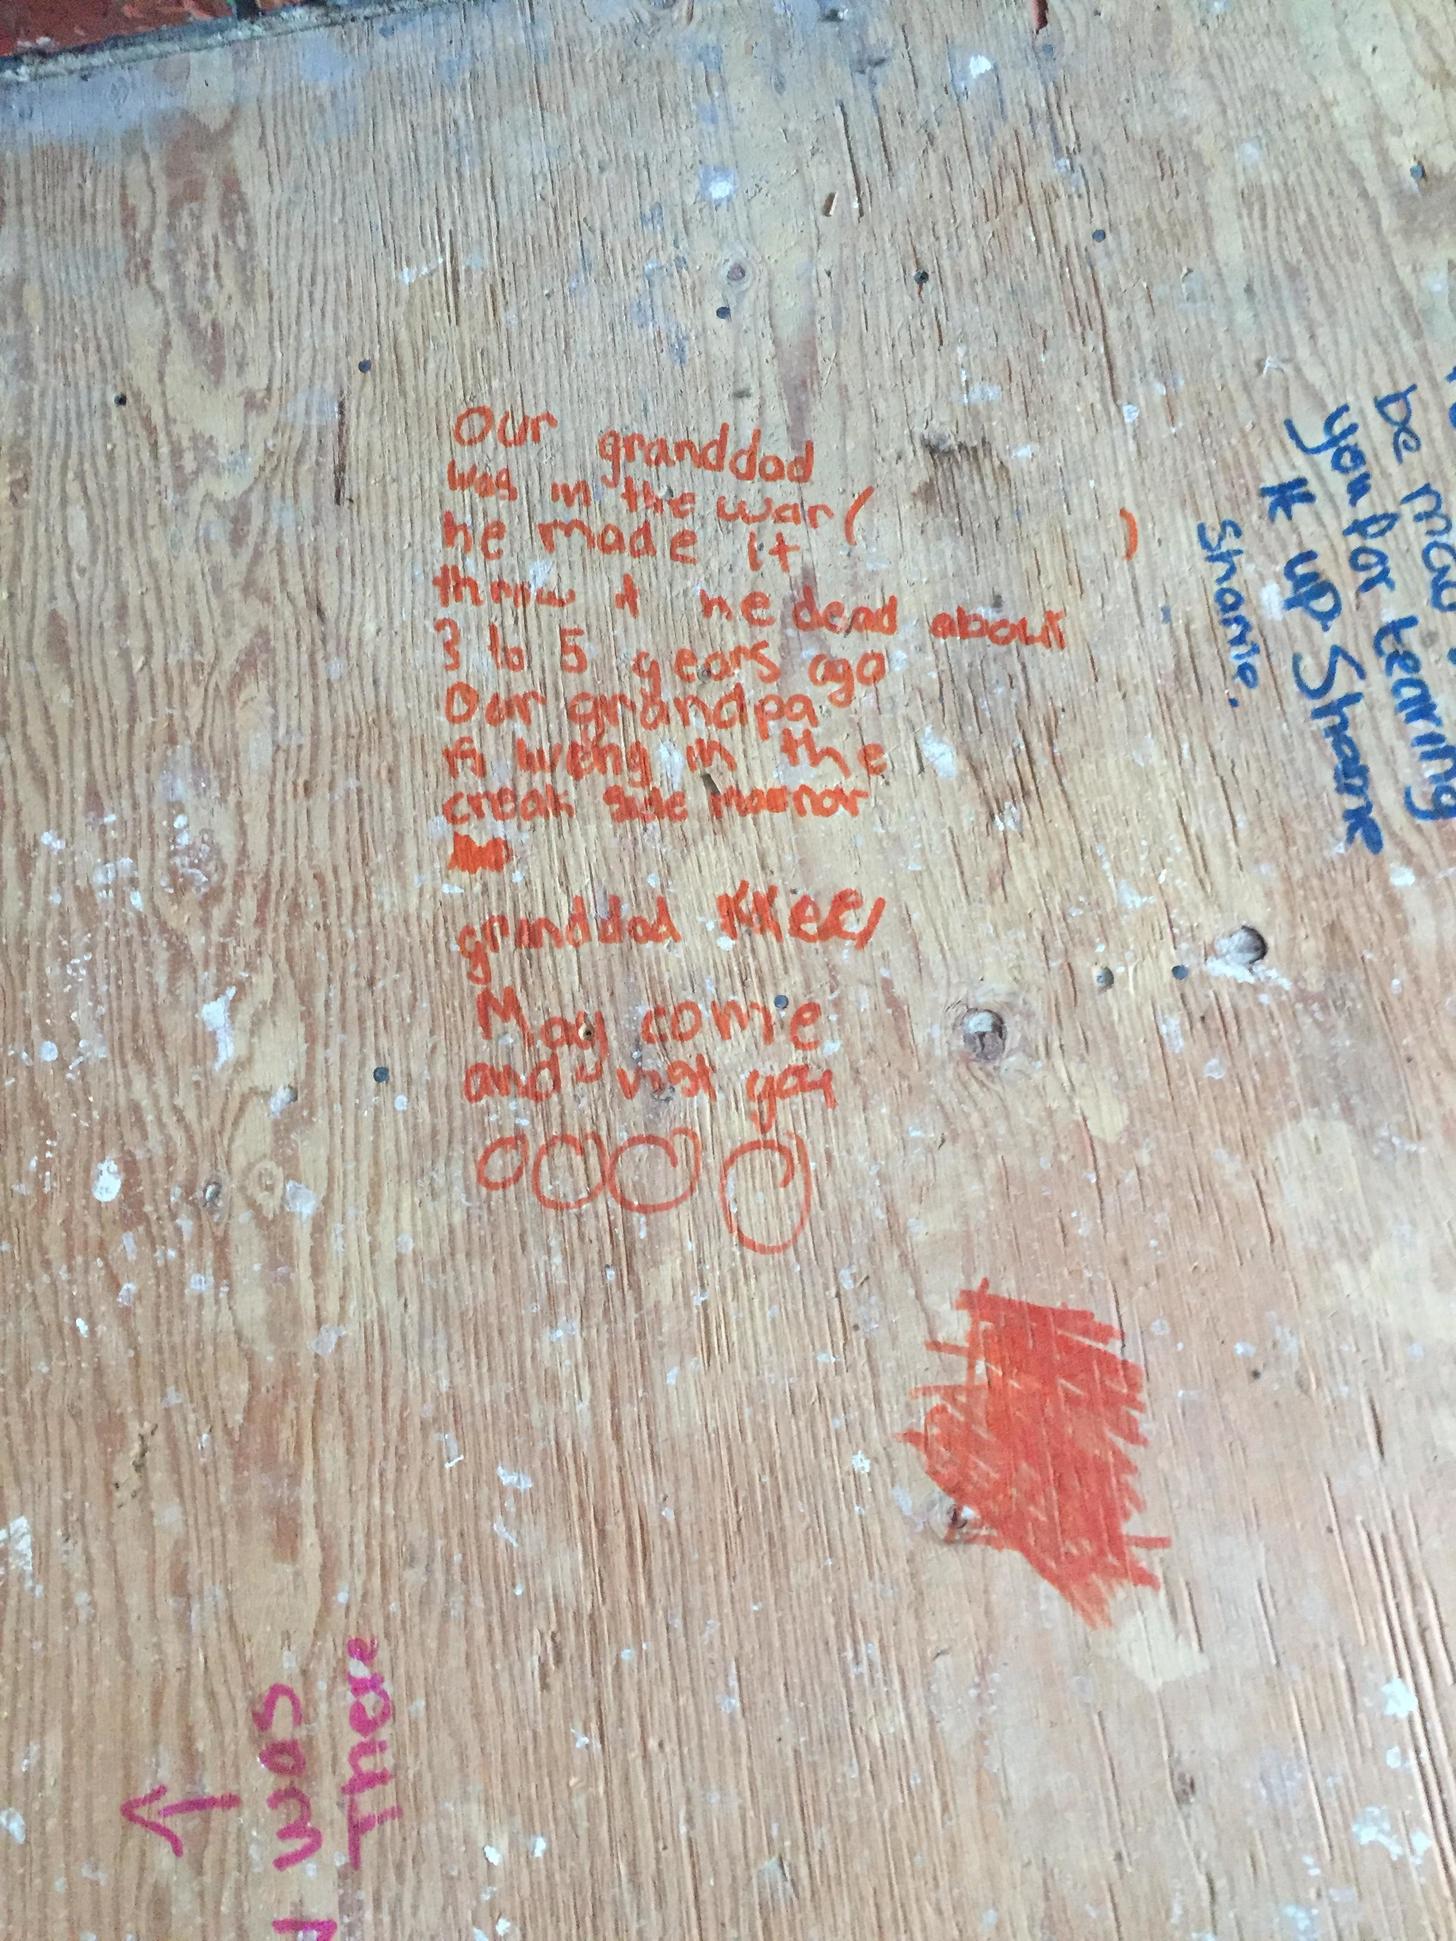 Our granddad
was in the war ( )
he made it
throw it he dead about
3 to 5 years ago
Our grandpa
is living in the
creak side manor
granddad
May come
and visit you
be
you for tearing
it up. Shame
Shame.
was
There